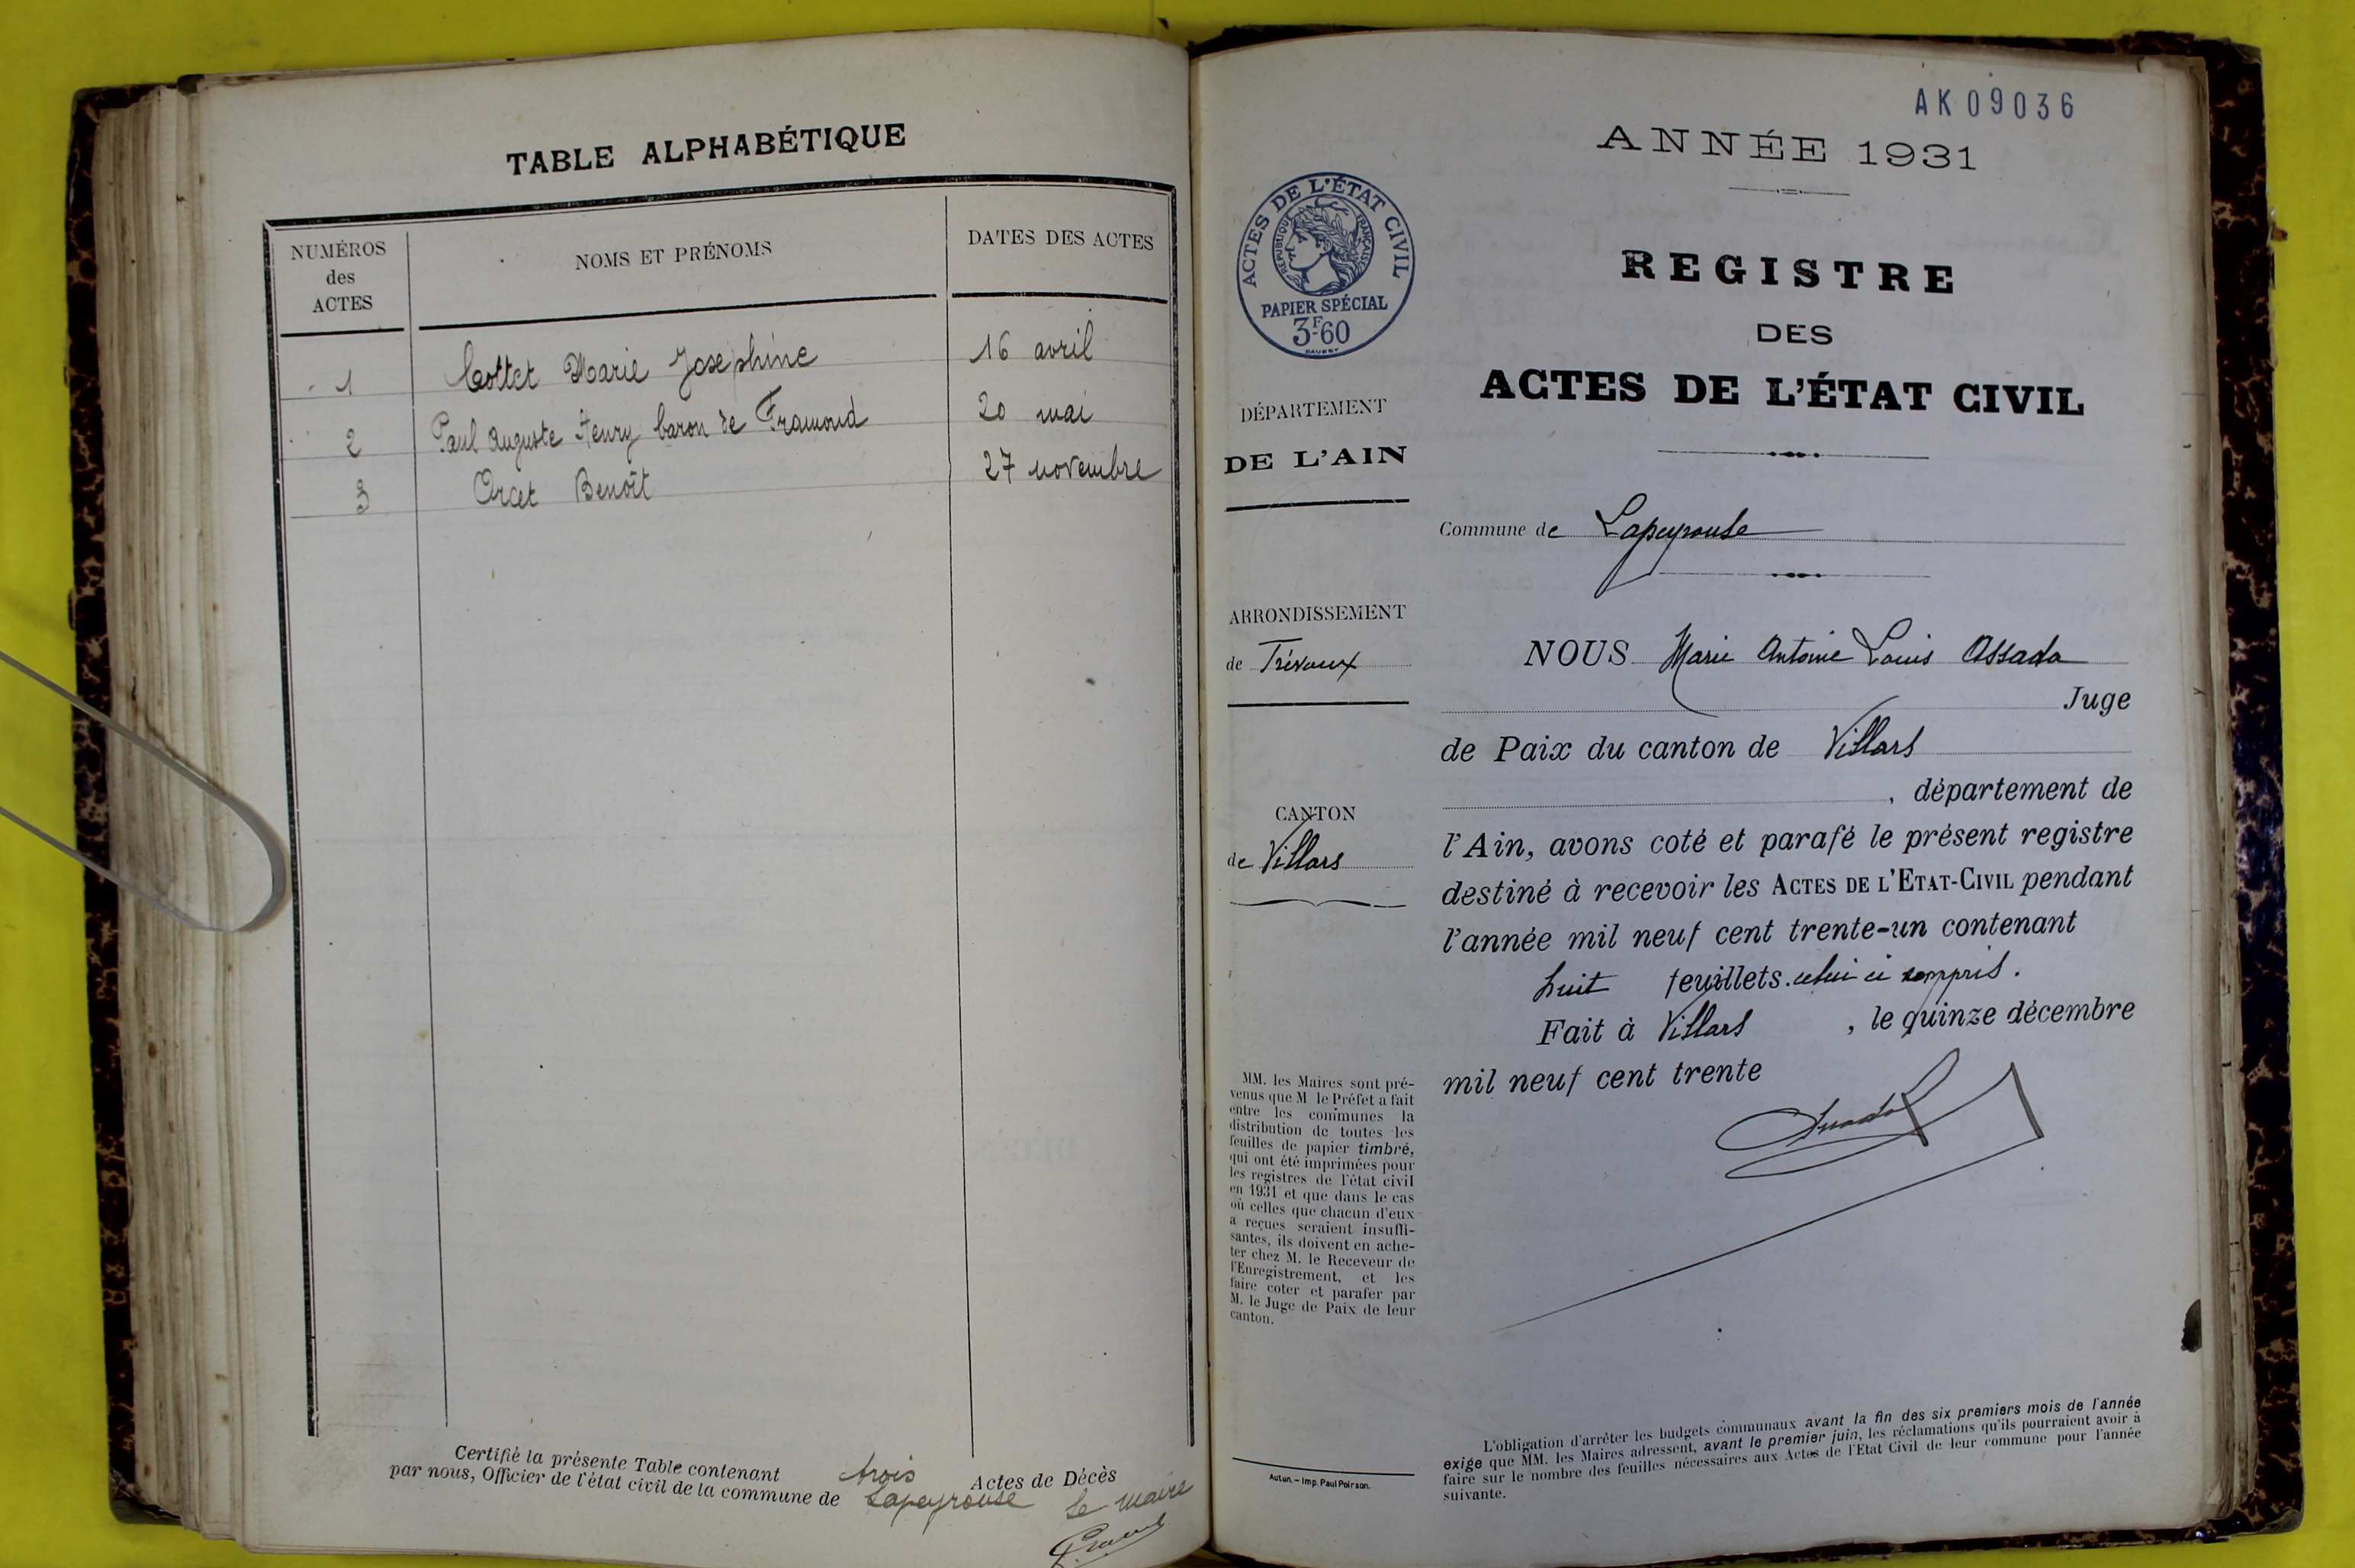 TABLE ALPHABÉTIQUE
NUMÉROS
des
ACTES
NOMS ET PRÉNOMS
DATES DES ACTES
1 Cottet Marie Josephine 16 avril
2 Paul Auguste Henry baron de Framond 20 mai
3 Orcet Benoît 27 novembre
Certifié la présente Table contenant trois Actes de Décès
par nous, Officier de l'état civil de la commune de Lapeyrouse le maire
AK09036
ANNÉE 1931
ACTES DE L'ÉTAT CIVIL
RÉPUBLIQUE FRANÇAISE
PAPIER SPÉCIAL
3F60
DÉPARTEMENT
DE L'AIN
ARRONDISSEMENT
de Trévoux
CANTON
de Villars
MM. les Maires sont pré-
venus que M le Préfet a fait
entre les communes la
distribution de toutes les
feuilles de papier timbré,
qui ont été imprimées pour
les registres de l'état civil
en 1931 et que dans le cas
où celles que chacun d'eux
a reçues seraient insuffi-
santes, ils doivent en ache-
ter chez M. le Receveur de
l'Enregistrement, et les
faire coter et parafer par
M. le Juge de Paix de leur
canton.
Autun. – Imp. Paul Poirson.
REGISTRE
DES
ACTES DE L'ÉTAT CIVIL
Commune de Lapeyrouse
NOUS Marie Antoine Louis Assada
Juge
de Paix du canton de Villars
, département de
l'Ain, avons coté et parafé le présent registre
destiné à recevoir les ACTES DE L'ETAT-CIVIL pendant
l'année mil neuf cent trente-un contenant
huit feuillets. celui ci compris.
Fait à Villars , le quinze décembre
mil neuf cent trente
L'obligation d'arrêter les budgets communaux avant la fin des six premiers mois de l'année
exige que MM. les Maires adressent, avant le premier juin, les réclamations qu'ils pourraient avoir à
faire sur le nombre des feuilles nécessaires aux Actes de l'Etat Civil de leur commune pour l'année
suivante.